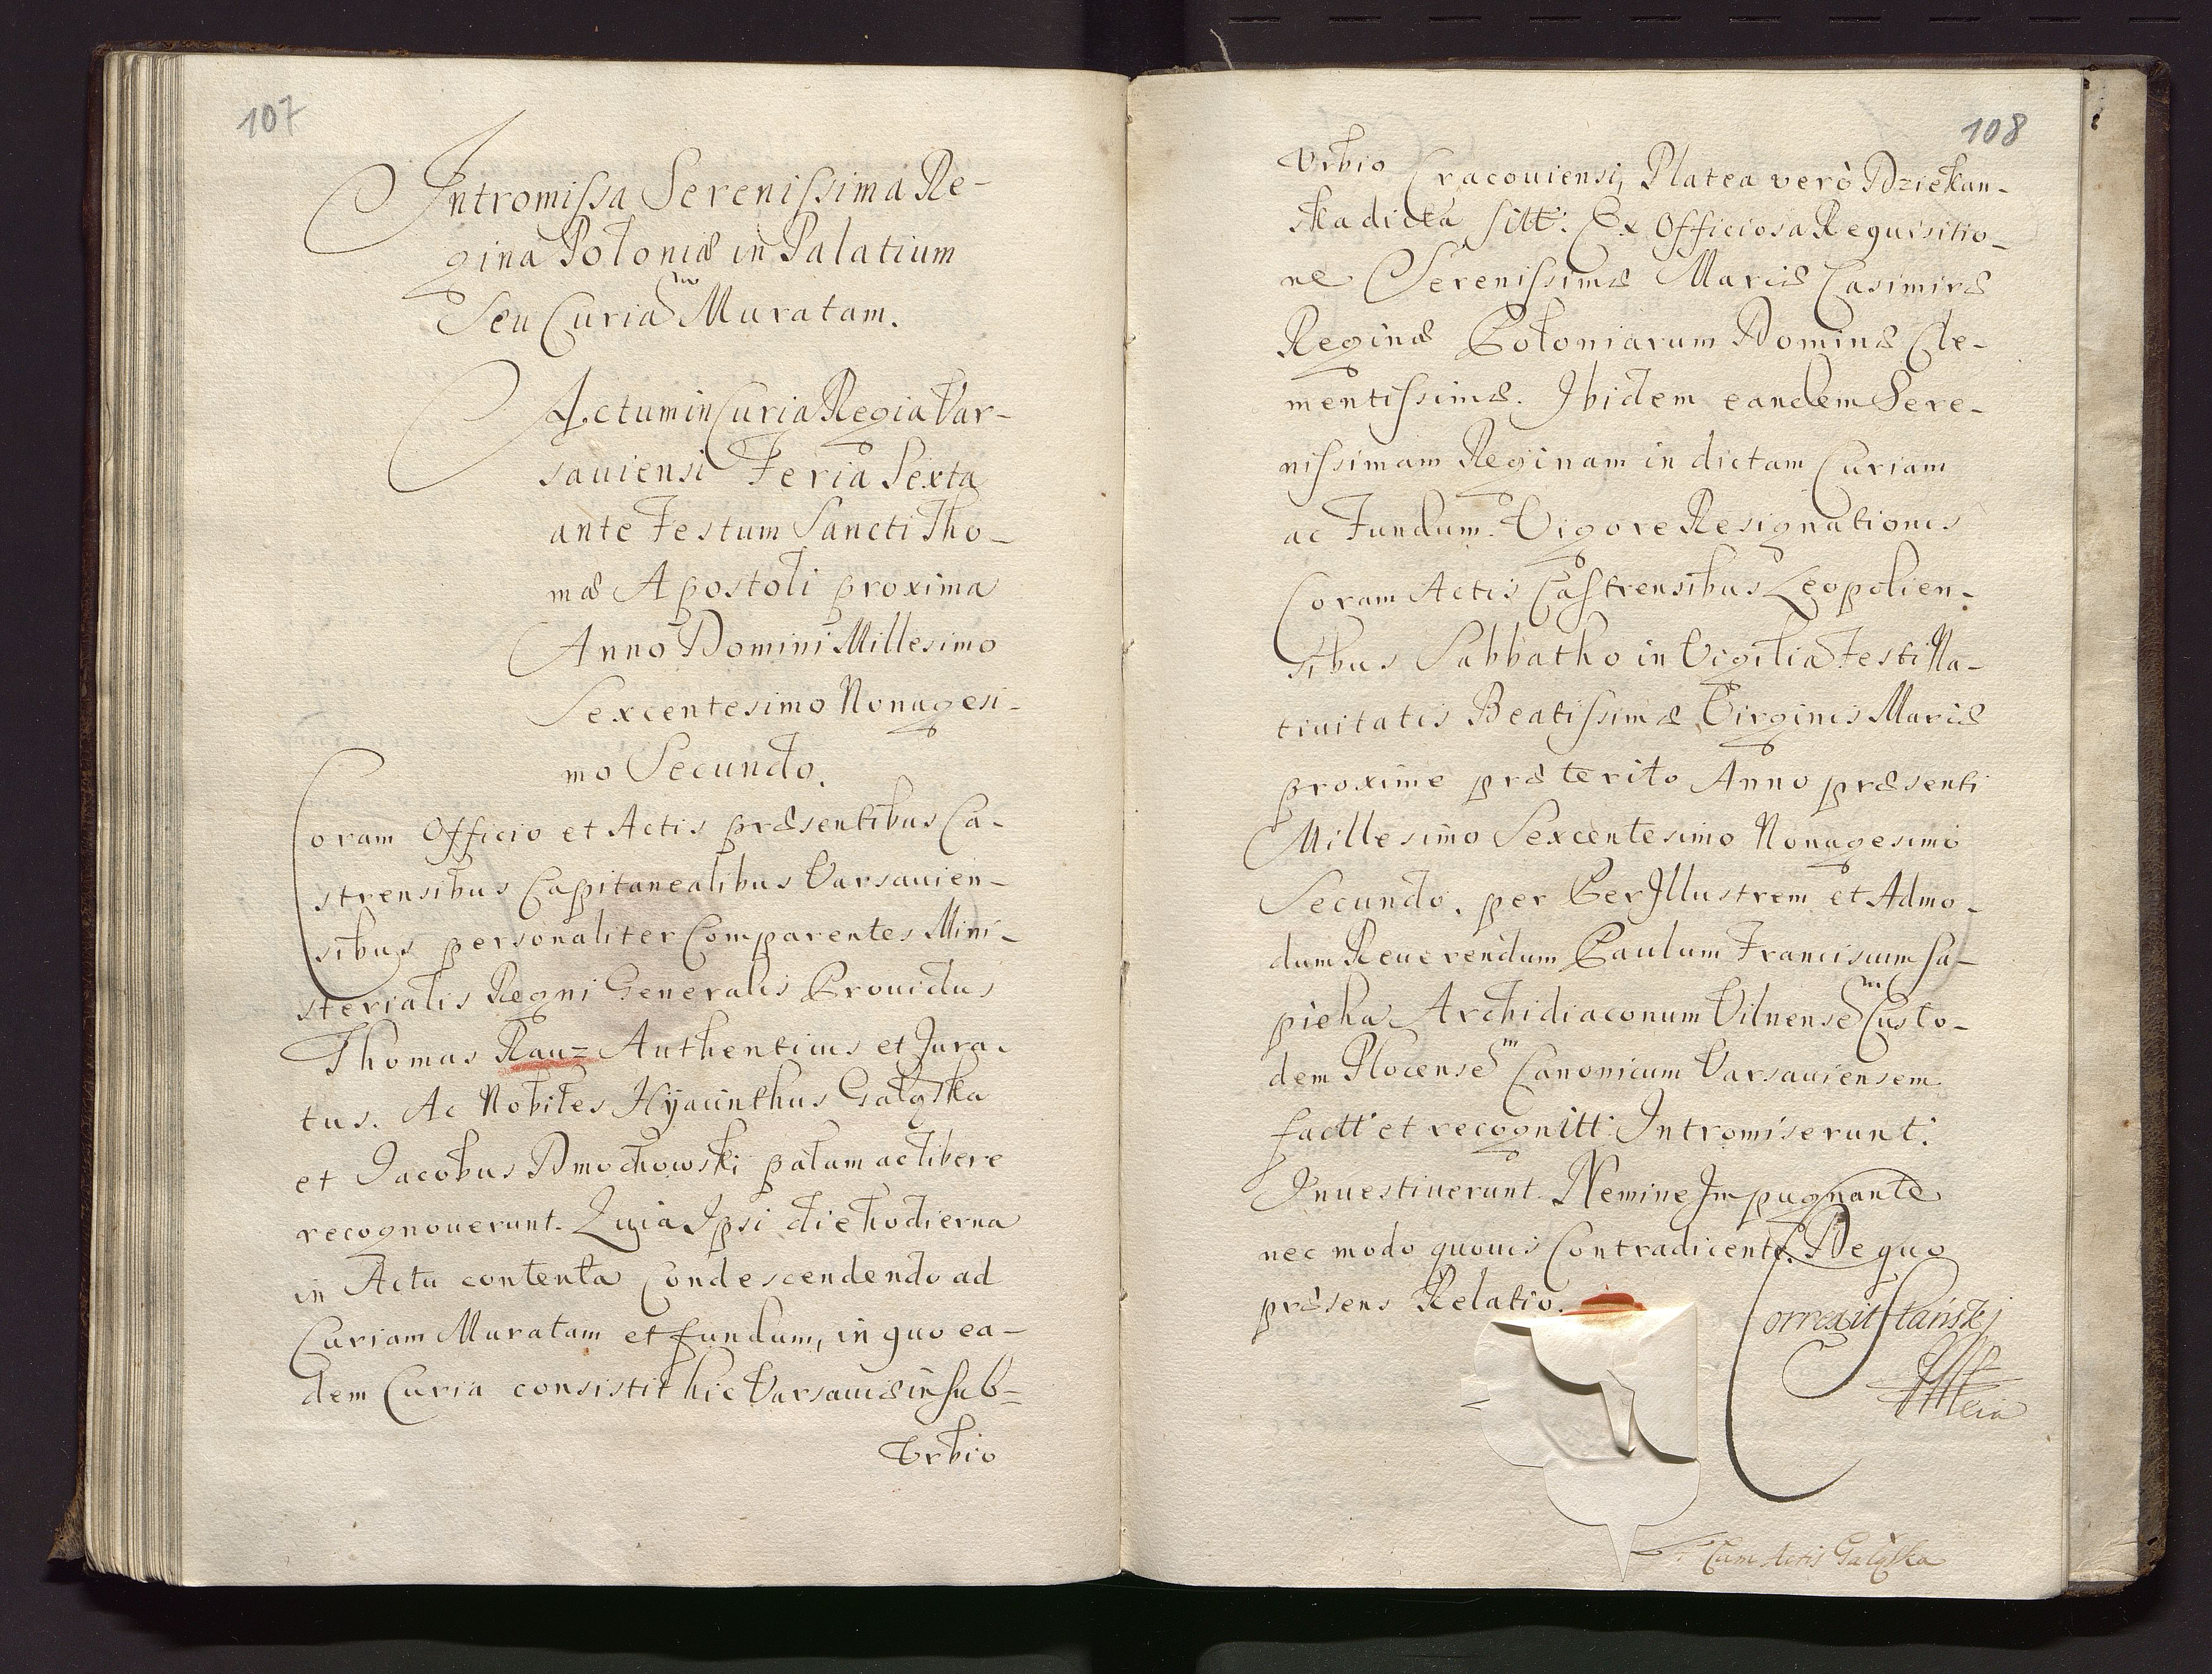 107
Intromissa Serenissima Re-
gina Poloniæ in Palatium
Seu Curiam Muratam.
Actum in Curia Regia Var-
sauiensi Feria Sexta
ante Festum Sancti Tho-
mæ Apostoli proxima
Anno Domini Millesimo
Sexcentesimo Nonagesi-
mo Secundo.
Coram Officio et Actis præsentibus Ca-
strensibus Capitanealibus Varsauien-
sibus personaliter Comparentes Mini-
sterialis Regni Generalis Prouidus
Thomas Rauz Authenticus et Jura-
tus. Ac Nobiles Hyacinthus Gałąska
et Jacobus Dmochowski palam ac libere
recognouerunt. Quia Ipsi die hodierna
in Actu contenta Condescendendo ad
Curiam Muratam et fundum, in quo ea-
dem Curia consistit hic Varsauiæ in sub-
Vrbio
108
Vrbio Cracouiensi, Platea verò Dziekan-
ska dicta sitt: Ex Officiosa Requisitio-
ne Serenissimæ Mariæ Casimiræ
Reginæ Poloniarum Dominæ Cle-
mentissimæ. Ibidem eandem Sere-
nissimam Reginam in dictam Curiam
ac Fundum. Vigore Resignationis
Coram Actis Castrensibus Leopolien-
sibus Sabbatho in Vigilia Festi Na-
tiuitatis Beatissimæ Virginis Mariæ
proxime præterito Anno præsenti
Millesimo Sexcentesimo Nonagesimo
Secundo. per Perillustrem et Admo-
dum Reuerendum Paulum Franciscum Sa-
pieha Archidiaconum Vilnensem Custo-
dem Plocensem Canonicum Varsauiensem
factt: et recognitt: Intromiserunt:
Inuestiuerunt. Nemine Impugnante
nec modo quouis Contradicente. De quo
præsens Relatio.
Correxit Stański
Cum Actis Gałąska